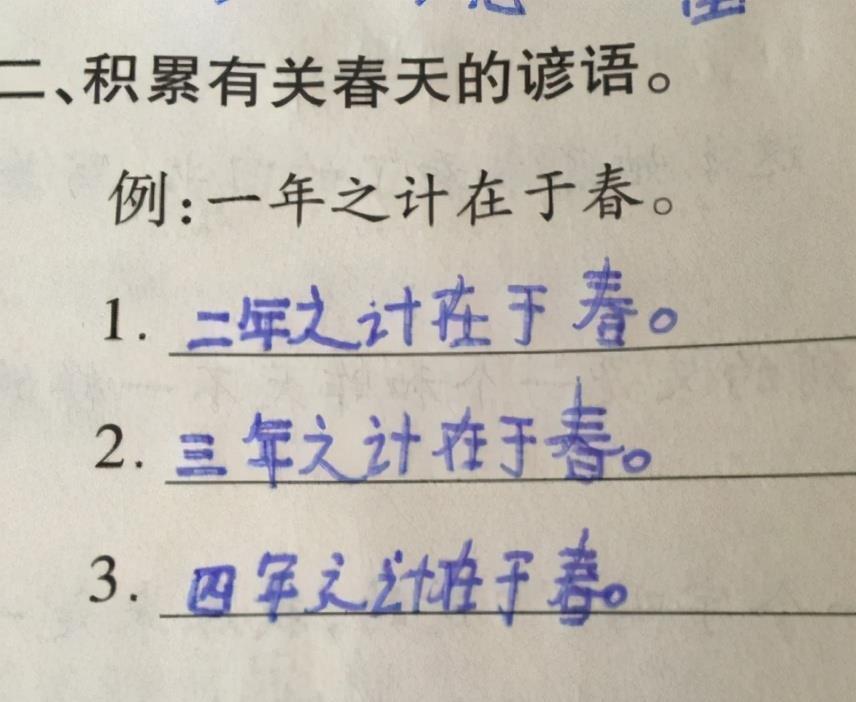 二、积累有关春天的谚语。
例:一年之计在于春。
1. 二年之计在于春。
2. 三年之计在于春。
3. 四年之计在于春。